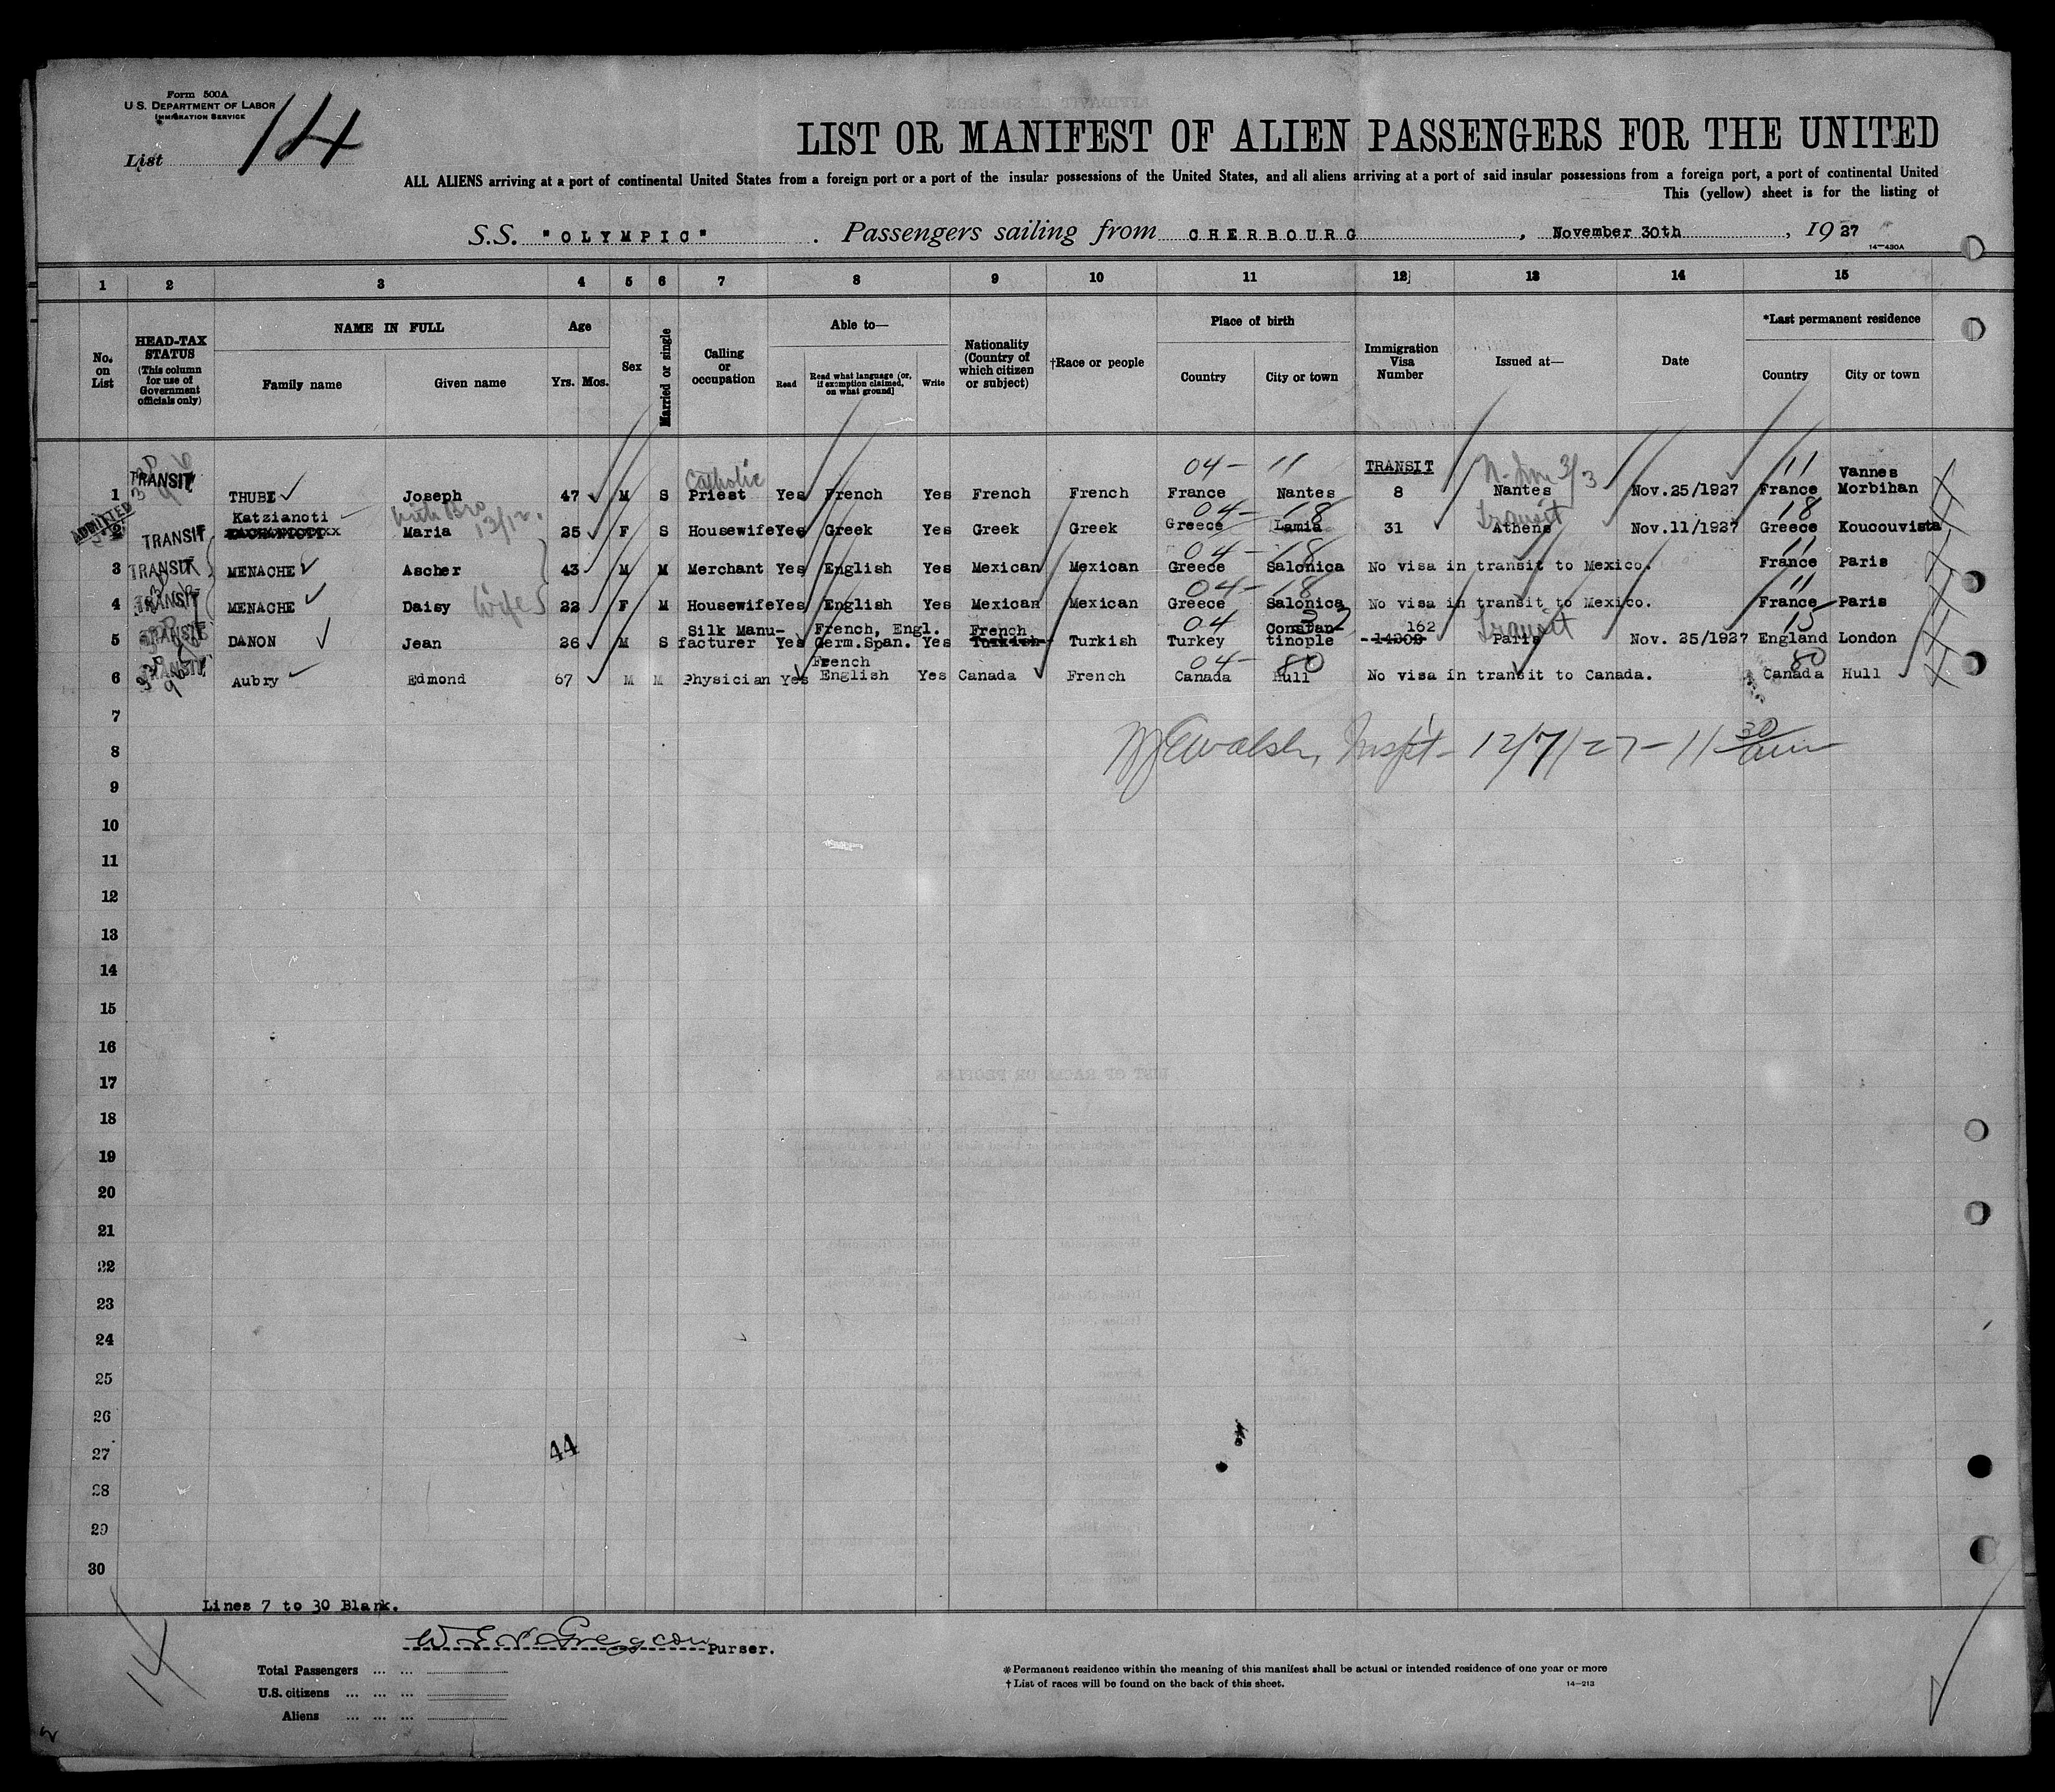 Form 500A
U.S. DEPARTMENT OF LABOR
IMMIGRATION SERVICE
List 14
LIST OR MANIFEST OF ALIEN PASSENGERS FOR THE UNITED
ALL ALIENS arriving at a port of continental United States from a foreign port or a port of the insular possessions of the United States, and all aliens arriving at a port of said insular possessions from a foreign port, a port of continental United
This (yellow) sheet is for the listing of
S.S. "OLYMPIC" . Passengers sailing from CHERBOURG , November 30th , 19 27
14—430A
1 2 3 4 5 6 7 8 9 10 11 12 13 14 15
No. on List
HEAD-TAX STATUS (This column for use of Government officials only)
NAME IN FULL
Family name Given name
Age
Yrs. Mos.
Sex
Married or single
Calling or occupation
Able to—
Read
Read what language (or, if exemption claimed, on what ground)
Write
Nationality (Country of which citizen or subject)
†Race or people
Place of birth
Country City or town
Immigration Visa Number
Issued at—
Date
*Last permanent residence
Country City or town
TRANSIT Catholic 04- 11 TRANSIT 11 Vannes
1 THUBE Joseph 47 M S Priest Yes French Yes French French France Nantes 8 Nantes Nov.25/1927 France Morbihan
ADMITTED Katzianoti 04- 18 Transit 18
TRANSIT Maria 25 F S Housewife Yes Greek Yes Greek Greek Greece Lamia 31 Athens Nov.11/1927 Greece Koucouvista
04- 18 11
3 TRANSIT MENACHE Ascher 43 M M Merchant Yes English Yes Mexican Mexican Greece Salonica No visa in transit to Mexico. France Paris
04- 18 11
4 TRANSIT MENACHE Daisy Wife 22 F M Housewife Yes English Yes Mexican Mexican Greece Salonica No visa in transit to Mexico. France Paris
TRANSIT Silk Manu- French, Engl. French 04 Constan- 162 Transit 15
5 DANON Jean 26 M S facturer Yes Germ.Span. Yes Turkish Turkish Turkey tinople 14309 Paris Nov. 25/1927 England London
TRANSIT French 04- 80 80
6 Aubry Edmond 67 M M Physician Yes English Yes Canada French Canada Hull No visa in transit to Canada. Canada Hull
7
8 Walsh, Insp't- 12/7/27- 11 30 am
9
10
11
12
13
14
15
16
17
18
19
20
21
22
23
24
25
26
27 44
28
29
30
Lines 7 to 30 Blank.
Purser.
14
Total Passengers ... ...
U.S. citizens ... ... ...
Aliens ... ... ...
*Permanent residence within the meaning of this manifest shall be actual or intended residence of one year or more
†List of races will be found on the back of this sheet.
14—213